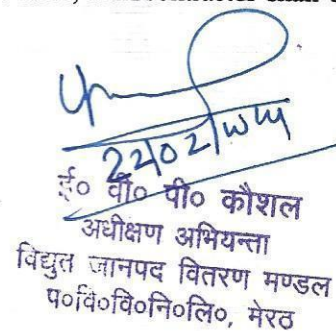 22/02/
ई० वी० पी० कौशल
अधीक्षण अभियन्ता
विद्युत जानपद वितरण मण्डल
प०वि०वि०नि०लि०, मेरठ